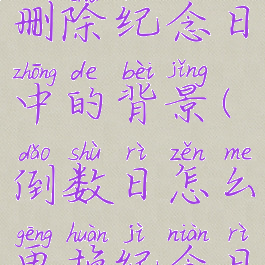 删除纪念日
zhōng de bèi jǐng
中的背景(
dào shù rì zěn me
倒数日怎么
gēng huàn jì niàn rì
更换纪念日